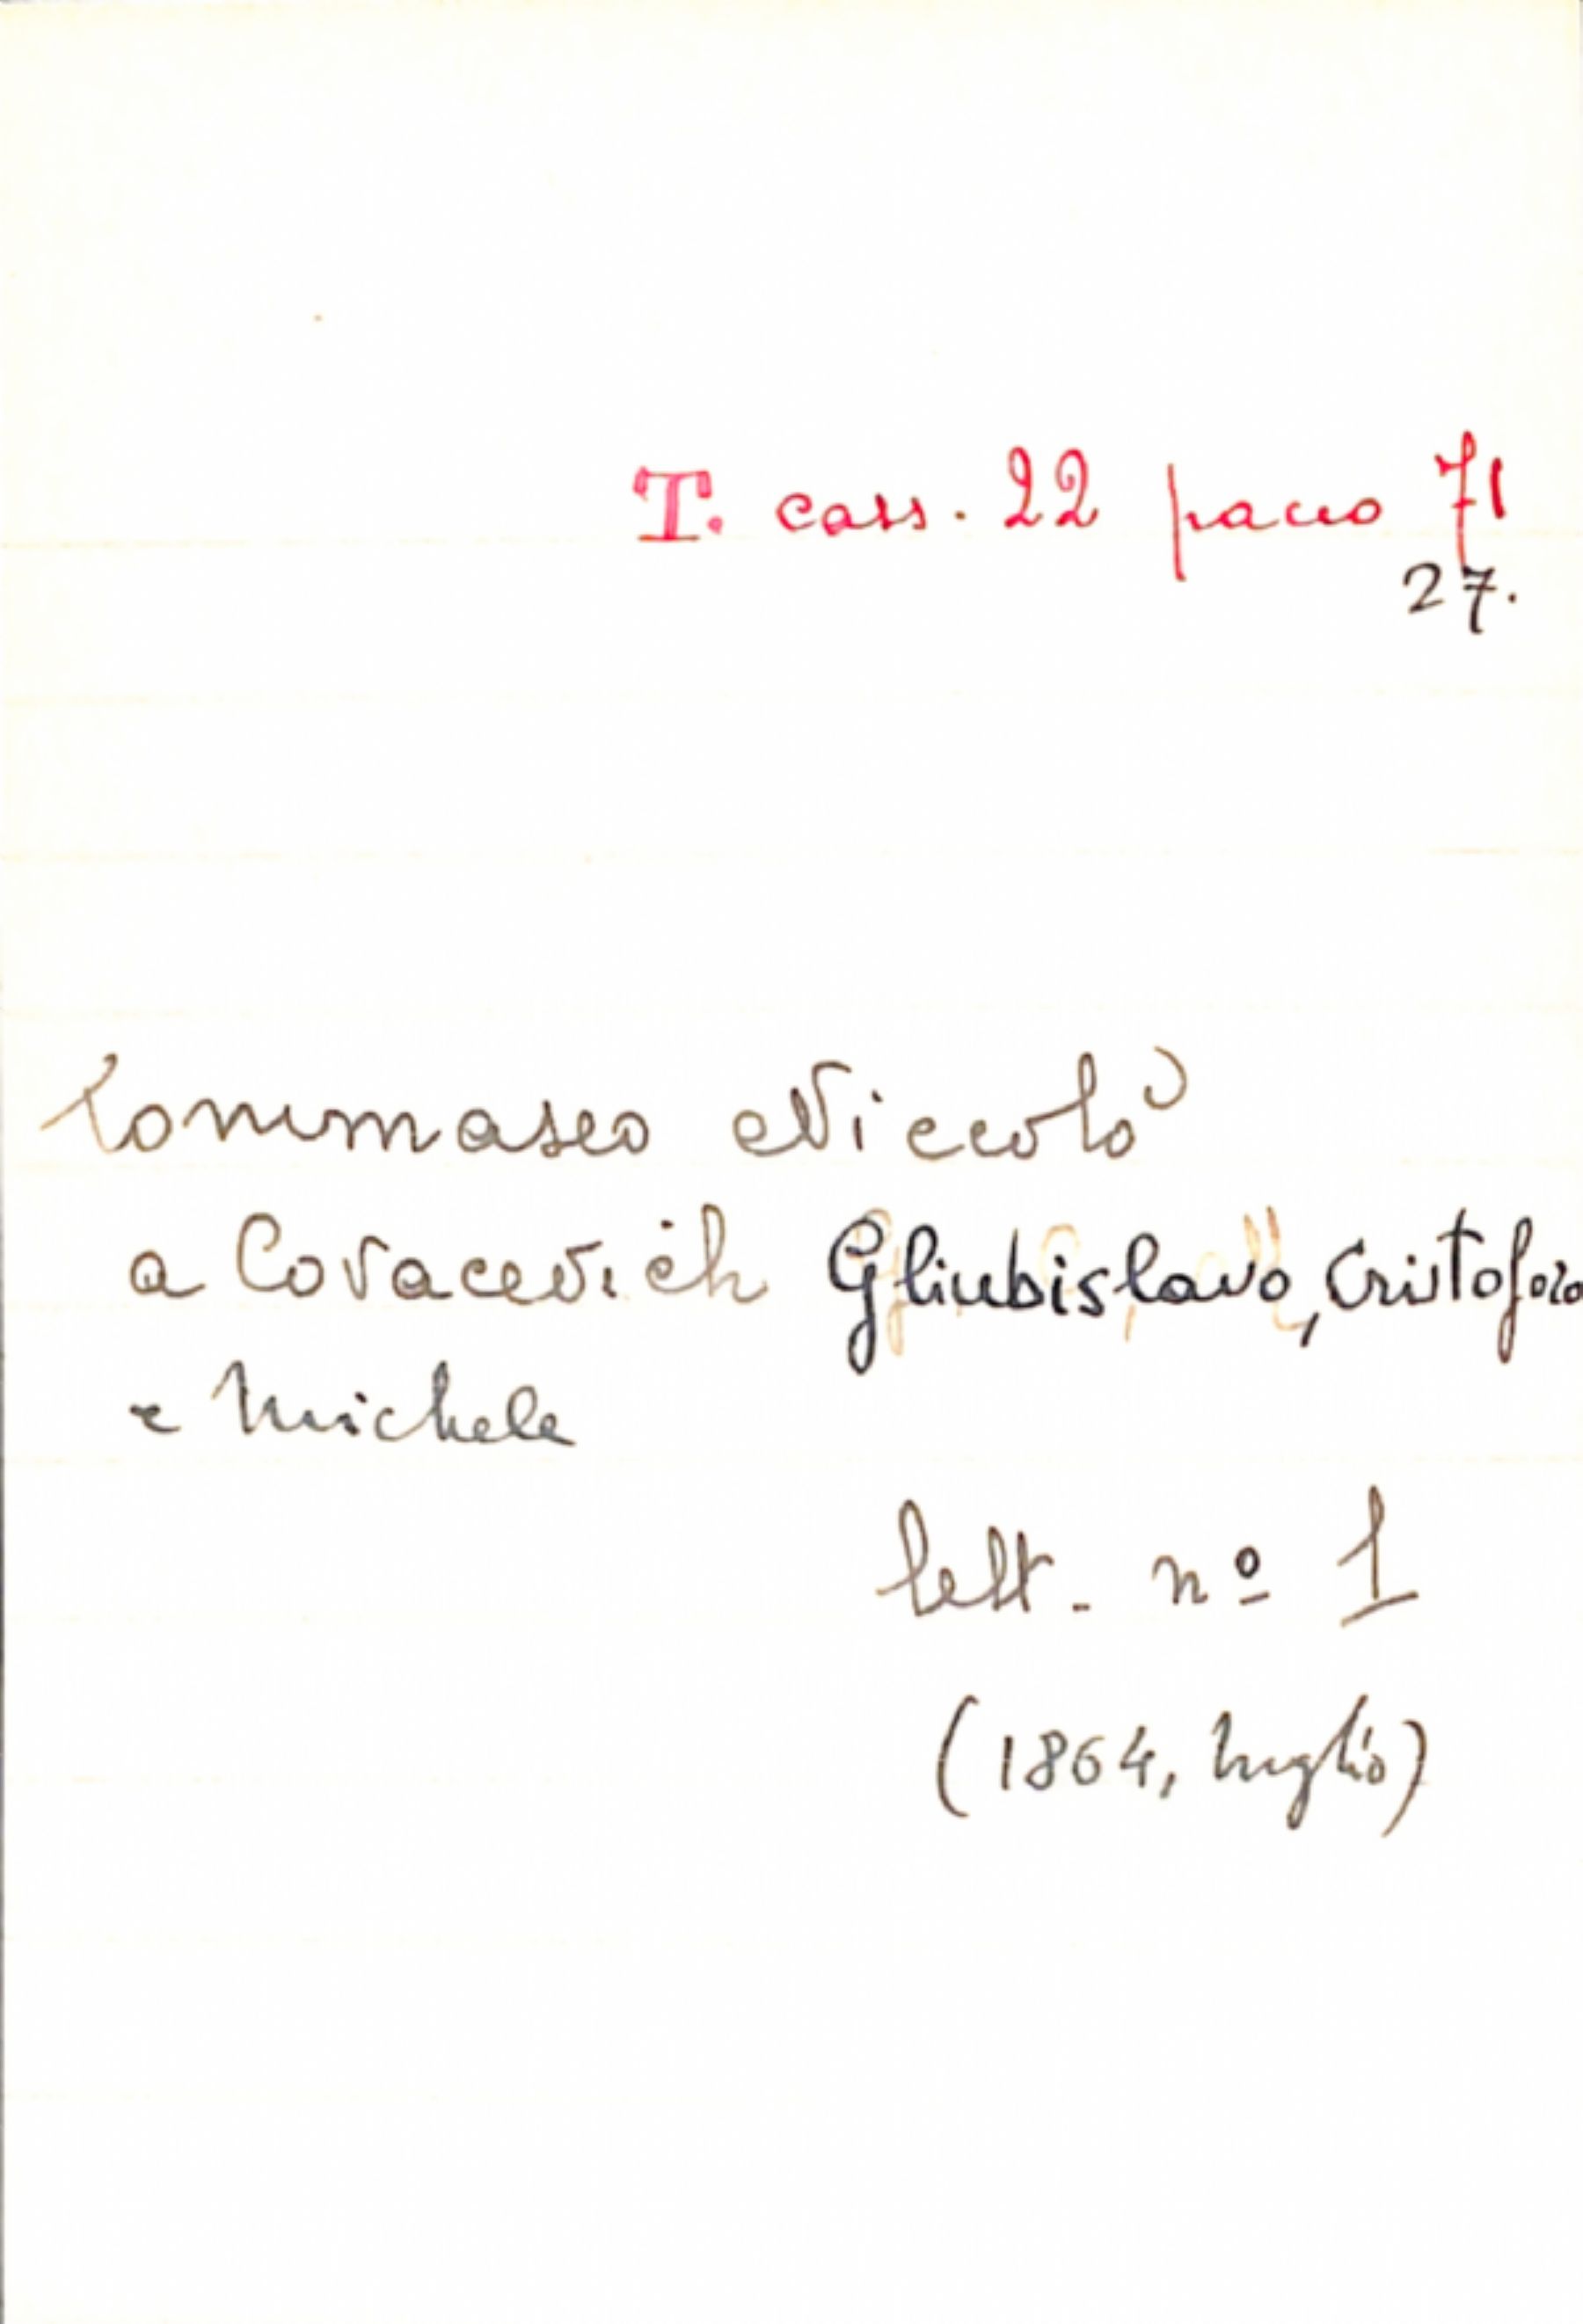 T. cass. 22 pacco 71
27.
Tommaseo Niccolò
a Covacevich Gliubislavo, Cristoforo
e Michele
lett. nº 1
(1864, luglio)